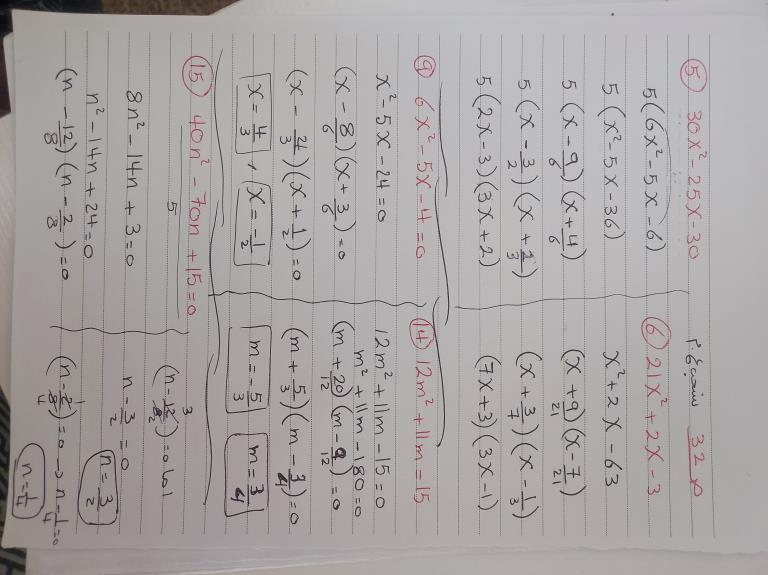 سنجيغ م 32 م
5 30x² - 25x - 30
5(6x² - 5x - 6)
5(x² - 5x - 36)
5(x - 9/6)(x + 4/6)
5(x - 3/2)(x + 2/3)
5(2x - 3)(3x + 2)
6 21x² + 2x - 3
x² + 2x - 63
(x + 9/21)(x - 7/21)
(x + 3/7)(x - 1/3)
(7x + 3)(3x - 1)
9 6x² - 5x - 4 = 0
x² - 5x - 24 = 0
(x - 8/6)(x + 3/6) = 0
(x - 4/3)(x + 1/2) = 0
x = 4/3 , x = -1/2
14 12m² + 11m = 15
12m² + 11m - 15 = 0
m² + 11m - 180 = 0
(m + 20/12)(m - 9/12) = 0
(m + 5/3)(m - 3/4) = 0
m = -5/3 m = 3/4
15 40n² - 70n + 15 = 0
5
8n² - 14n + 3 = 0
n² - 14n + 24 = 0
(n - 12/8)(n - 2/8) = 0
(n - 12/8) = 0
n - 3/2 = 0
n = 3/2
(n - 2/8) = 0 → n - 1/4 = 0
n = 1/4